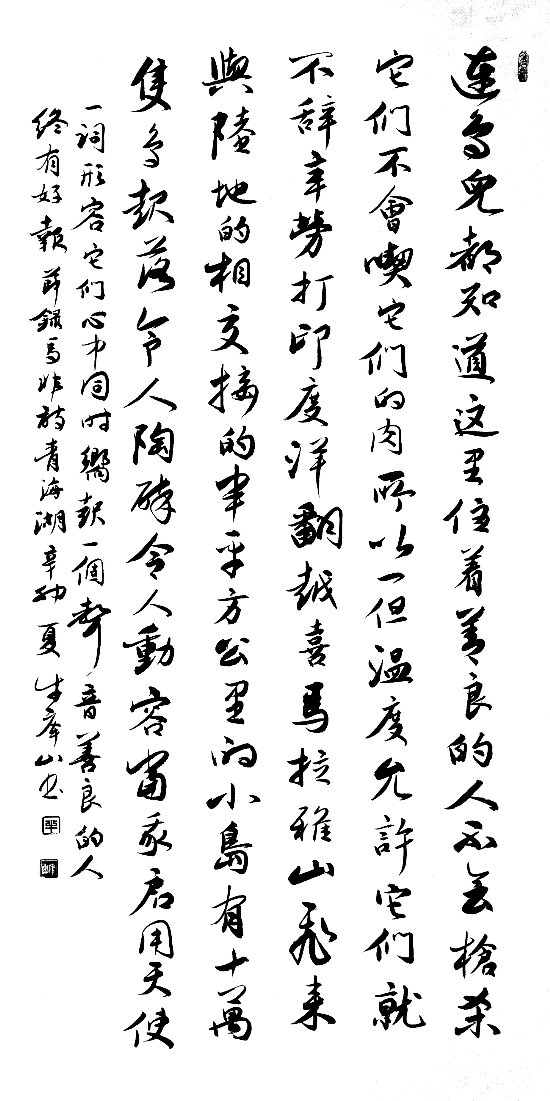 連鳥兒都知道这里住着善良的人不会槍杀
它们不會喫它们的肉所以一但温度允許它们就
不辞辛勞打印度洋翻越喜馬拉雅山飛来
與陸地的相交接的半平方公里的小島有十萬
隻鳥起落令人陶醉令人動容當我启用天使
一詞形容它们心中同时響起一個聲音善良的人
终有好報 節錄馬非诗青海湖 辛卯夏 生庠山书